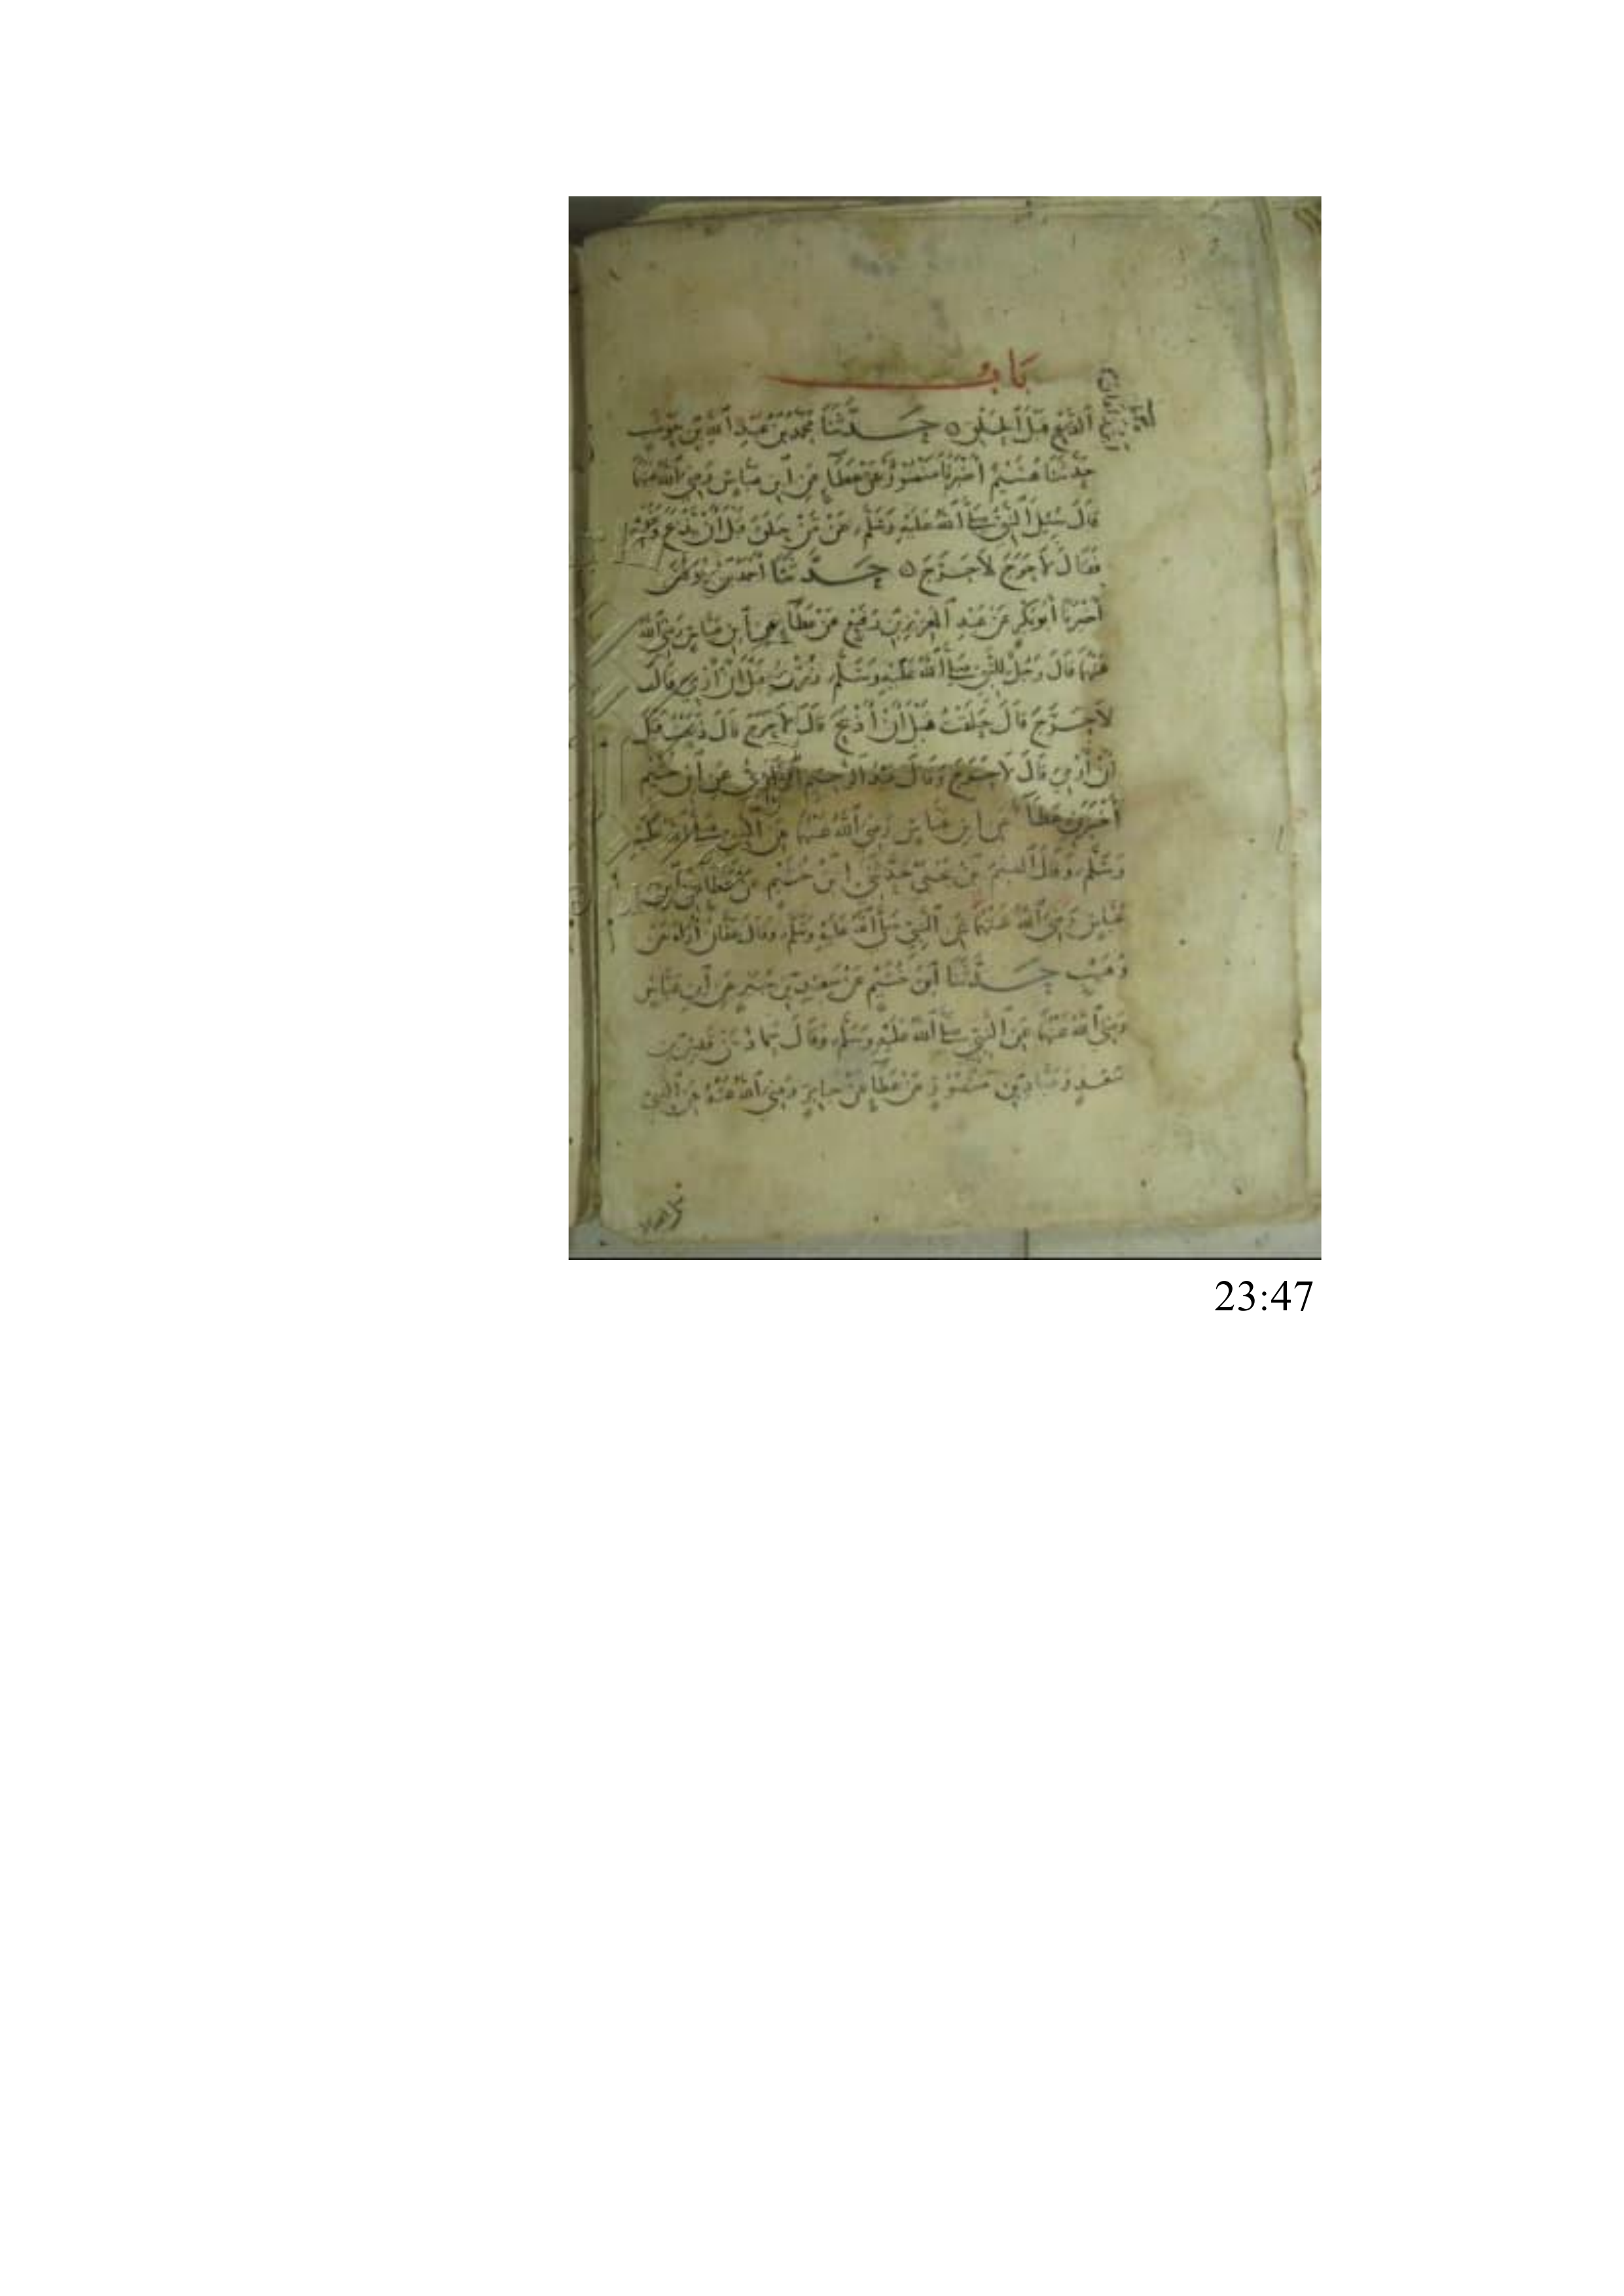 باب
الذبح قبل الحلق ۝ حدثنا محمد بن عبد الله بن حوشب
حدثنا هشيم أخبرنا منصور عن عطاء عن ابن عباس رضي الله عنهما
قال سئل النبي صلى الله عليه وسلم عن من حلق قبل أن يذبح ونحوه
فقال لا حرج لا حرج ۝ حدثنا أحمد بن يونس
أخبرنا أبو بكر عن عبد العزيز بن رفيع عن عطاء عن ابن عباس رضي الله
عنهما قال رجل للنبي صلى الله عليه وسلم زرت قبل أن أرمي قال
لا حرج قال حلقت قبل أن أذبح قال لا حرج قال ذبحت قبل
أن أرمي قال لا حرج وقال عبد الرحيم الرازي عن ابن خثيم
أخبرني عطاء عن ابن عباس رضي الله عنهما عن النبي صلى الله عليه
وسلم وقال القسم بن يحيى حدثني ابن خثيم عن عطاء عن ابن
عباس رضي الله عنهما عن النبي صلى الله عليه وسلم وقال عفان أراه عن
وهيب حدثنا ابن خثيم عن سعيد بن جبير عن ابن عباس
رضي الله عنهما عن النبي صلى الله عليه وسلم وقال حماد عن قيس بن
سعد وعباد بن منصور عن عطاء عن جابر رضي الله عنه عن النبي
23:47